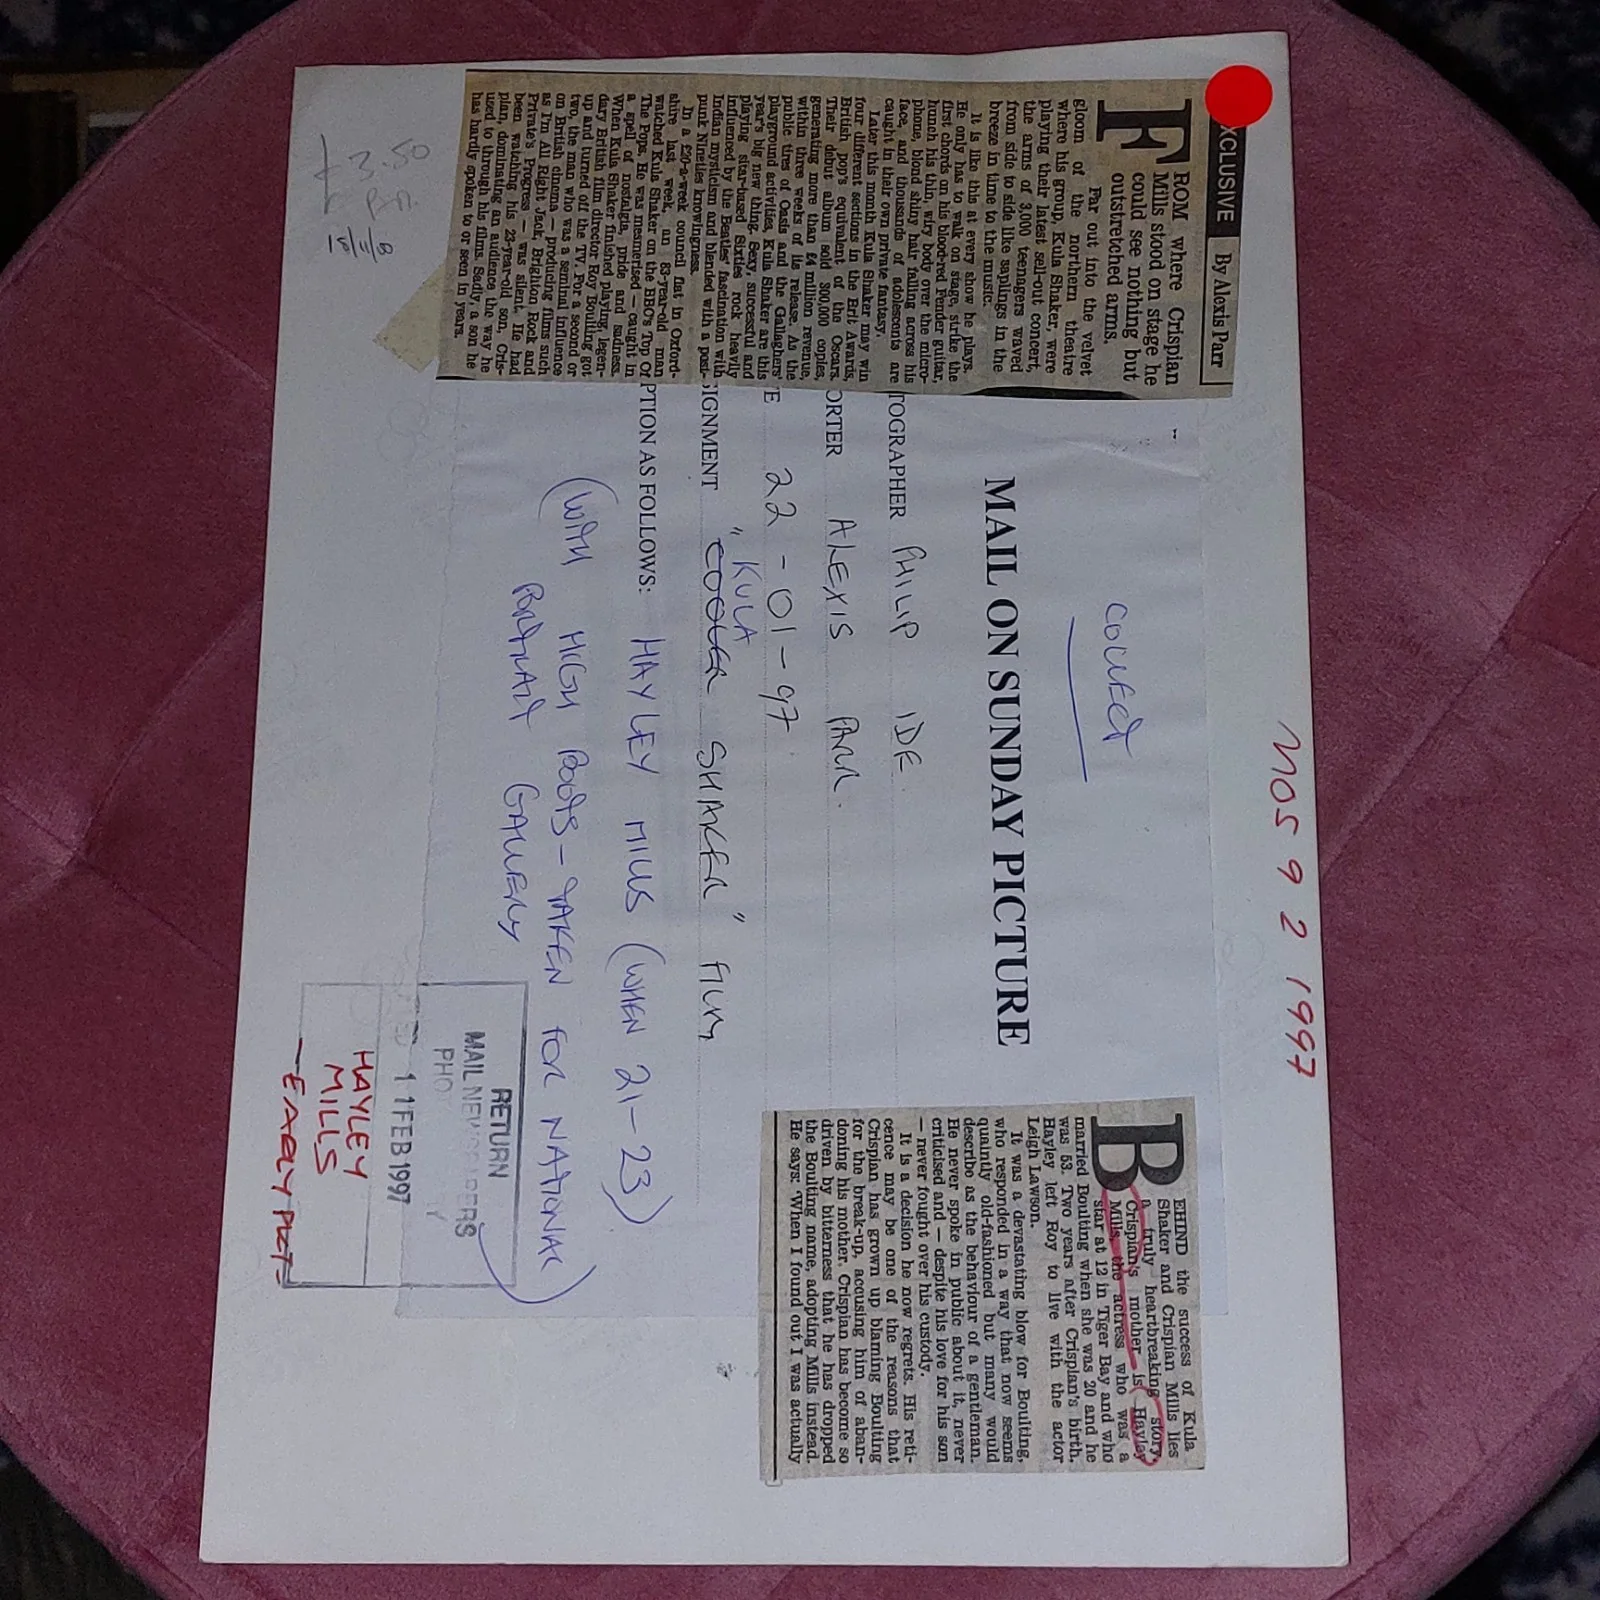 MOS 9 2 1997
EXCLUSIVE By Alexis Parr
FROM where Crispian
Mills stood on stage he
could see nothing but
outstretched arms.
Far out into the velvet
gloom of the northern theatre
where his group, Kula Shaker, were
playing their latest sell-out concert,
the arms of 3,000 teenagers waved
from side to side like saplings in the
breeze in time to the music.
It is like this at every show he plays.
He only has to walk on stage, strike the
first chords on his blood-red Fender guitar,
hunch his thin, wiry body over the micro-
phone, blond shiny hair falling across his
face, and thousands of adolescents are
caught in their own private fantasy.
Later this month Kula Shaker may win
four different sections in the Brit Awards,
British pop's equivalent of the Oscars.
Their debut album sold 300,000 copies,
generating more than £4 million revenue,
within three weeks of its release. As the
public tires of Oasis and the Gallaghers'
playground activities, Kula Shaker are this
year's big new thing. Sexy, successful and
playing sitar-based Sixties rock heavily
influenced by the Beatles' fascination with
Indian mysticism and blended with a post-
punk Nineties knowingness.
In a £20-a-week council flat in Oxford-
shire last week, an 83-year-old man
watched Kula Shaker on the BBC's Top Of
The Pops. He was mesmerised — caught in
a spell of nostalgia, pride and sadness.
When Kula Shaker finished playing, legen-
dary British film director Roy Boulting got
up and turned off the TV. For a second or
two, the man who was a seminal influence
on British cinema — producing films such
as I'm All Right Jack, Brighton Rock and
Private's Progress — was silent. He had
been watching his 23-year-old son, Cris-
pian, dominating an audience the way he
used to through his films. Sadly, a son he
has hardly spoken to or seen in years.
MAIL ON SUNDAY PICTURE
TOGRAPHER PHILIP IDE.
ORTER ALEXIS PARR.
E 22-01-97
SIGNMENT "COOLER KULA SHAKER" FILM
PTION AS FOLLOWS: HAYLEY MILLS (WHEN 21-23)
(WITH HIGH BOOTS - TAKEN FOR NATIONAL
PORTRAIT GALLERY)
BEHIND the success of Kula
Shaker and Crispian Mills lies
a truly heartbreaking story.
Crispian's mother is Hayley
Mills, the actress who was a
star at 12 in Tiger Bay and who
married Boulting when she was 20 and he
was 53. Two years after Crispian's birth,
Hayley left Roy to live with the actor
Leigh Lawson.
It was a devastating blow for Boulting,
who responded in a way that now seems
quaintly old-fashioned but many would
describe as the behaviour of a gentleman.
He never spoke in public about it, never
criticised and — despite his love for his son
— never fought over his custody.
It is a decision he now regrets. His reti-
cence may be one of the reasons that
Crispian has grown up blaming Boulting
for the break-up, accusing him of aban-
doning his mother. Crispian has become so
driven by bitterness that he has dropped
the Boulting name, adopting Mills instead.
He says: 'When I found out I was actually
RETURN
MAIL NEWSPAPERS
PHO
11 FEB 1997
HAYLEY
MILLS
- EARLY PICT=
3.50
18/11/8